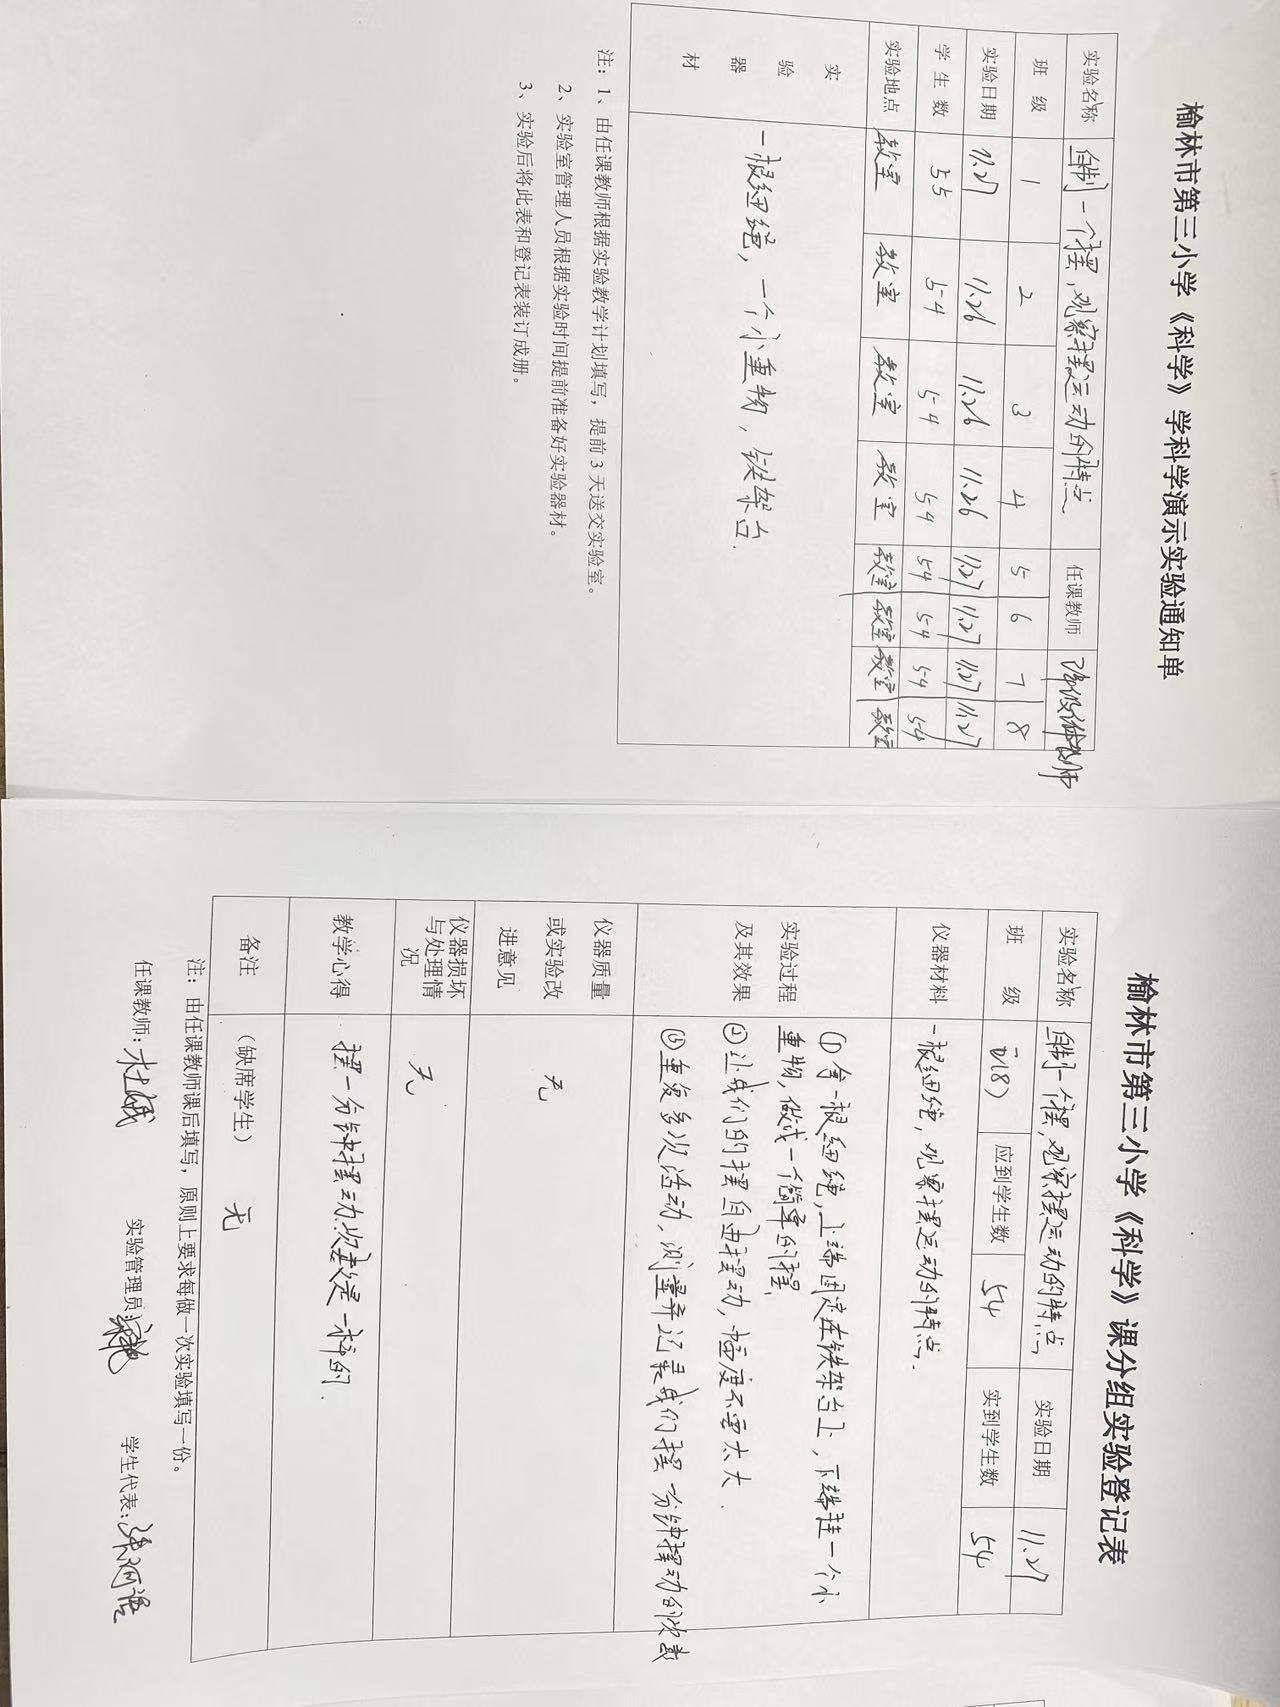 榆林市第三小学《科学》学科学演示实验通知单
实验名称 自制一个摆，观察摆运动的特点 任课教师
班 级 1 2 3 4 5 6 7 8
实验日期 11.27 11.26 11.26 11.26 11.27 11.27 11.27 11.27
学 生 数 55 54 54 54 54 54 54 54
实验地点 教室 教室 教室 教室 教室 教室 教室 教室
实验器材 一根细绳，一个小重物，铁架台.
注：1、由任课教师根据实验教学计划填写，提前3天送交实验室。
2、实验室管理人员根据实验时间提前准备好实验器材。
3、实验后将此表和登记表装订成册。
榆林市第三小学《科学》课分组实验登记表
实验名称 自制一个摆，观察摆运动的特点 实验日期 11.27
班 级 五(8) 应到学生数 54 实到学生数 54
仪器材料 一根细绳，观察摆运动的特点.
实验过程及其效果 ①拿一根细绳，上端固定在铁架台上，下端挂一个小
重物，做成一个简单的摆.
②让我们的摆自由摆动，幅度不要太大.
③重复多次活动，测量并记录我们摆一分钟摆动的次数
仪器质量或实验改进意见 无
仪器损坏与处理情况 无
教学心得 摆一分钟摆动次数是一样的.
备注 （缺席学生） 无
注：由任课教师课后填写，原则上要求每做一次实验填写一份。
任课教师: 杜娥 实验管理员: 学生代表: